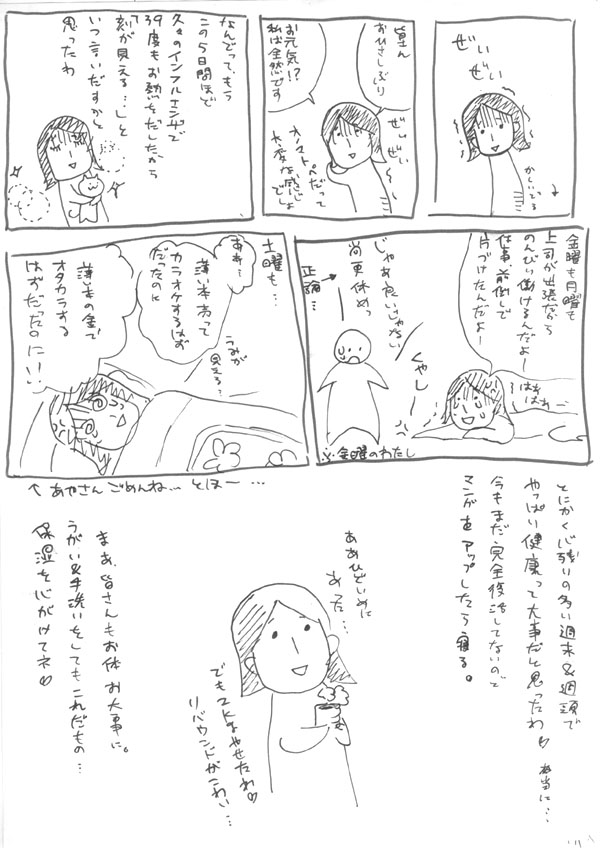 ぜぃ
ぜぃ
皆さん
おひさしぶり
お元気!?
私は全然です
ぜぇ
ぜぃ
だって
大変な感じ
でしょ
なんでって、もう
この5日間ほど
久々のインフルエンザで
39度もお熱をだしたから
「刻が見える…」と
いつ言いだすかと
思ったわ
金曜も月曜も
上司が出張だから
のんびり働けるんだよー
仕事、前倒しで
片づけたんだよー
はぁはぁ
くやしー
じゃあ良いじゃない
尚更休めっ
正論…
※金曜のわたし
土曜も…
ああ…
薄い本売って
カラオケするはず
だったのに
うみが
見える…
薄い本の金で
オタカラする
はずだったのに!!
↑あやさんごめんね… とほー…
とにかく心残りの多い週末&週頭で
やっぱい健康って大事だと思ったわ♡ 本当に…
今もまだ完全復活してないので
マンガをアップしたら寝る。
ああひどいめに
あった…
でも2kgやせたわ♡
リバウンドがこわい…
まあ、皆さんもお体お大事に。
うがい&手洗いをしてもこれだもの…
保湿を心がけてネ♡